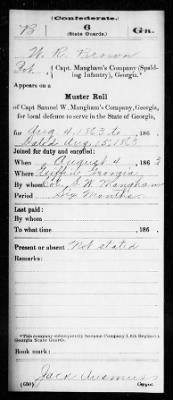 Confederate.
B 6 Gn.
(State Guards.)
W. R. Brown
Pvt., Capt. Mangham's Company (Spald-
ing Infantry), Georgia.*
Appears on a
Muster Roll
of Capt. Samuel W. Mangham's Company, Georgia,
for local defense to serve in the State of Georgia,
for Aug. 4, 1863 to , 186 .
Dated Aug. 15, 1863
Joined for duty and enrolled:
When August 4 , 1863
Where Griffin Georgia
By whom Col. S. W. Mangham
Period Six Months
Last paid:
By whom
To what time , 186 .
Present or absent Not stated
Remarks:
*This company subsequently became Company 6th Regiment
Georgia State Guards.
Book mark:
Jack
(639) Copyist.